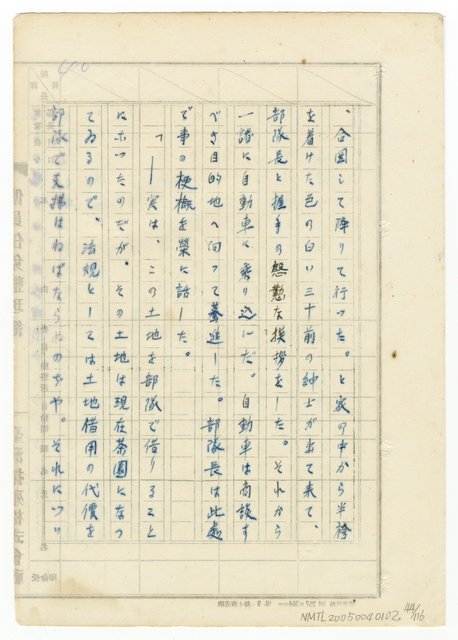 、合図して降りて行った。と家の中から半袴
を着けた色の白い三十前の紳士が出て来て、
部隊長と握手の慇懃な挨拶をした。それから
一諸に自動車に乗り込んだ。自動車は商談す
べき目的地へ向って驀進した。部隊長は此処
で事の梗概を榮に話した。
「――実は、この土地を部隊で借りること
になったのだが、その土地は現在茶園になつ
てゐるので、法規としては土地借用の代償を
部隊で支拂はねばならぬのぢや。それについ
NMTL20050040102
44/116